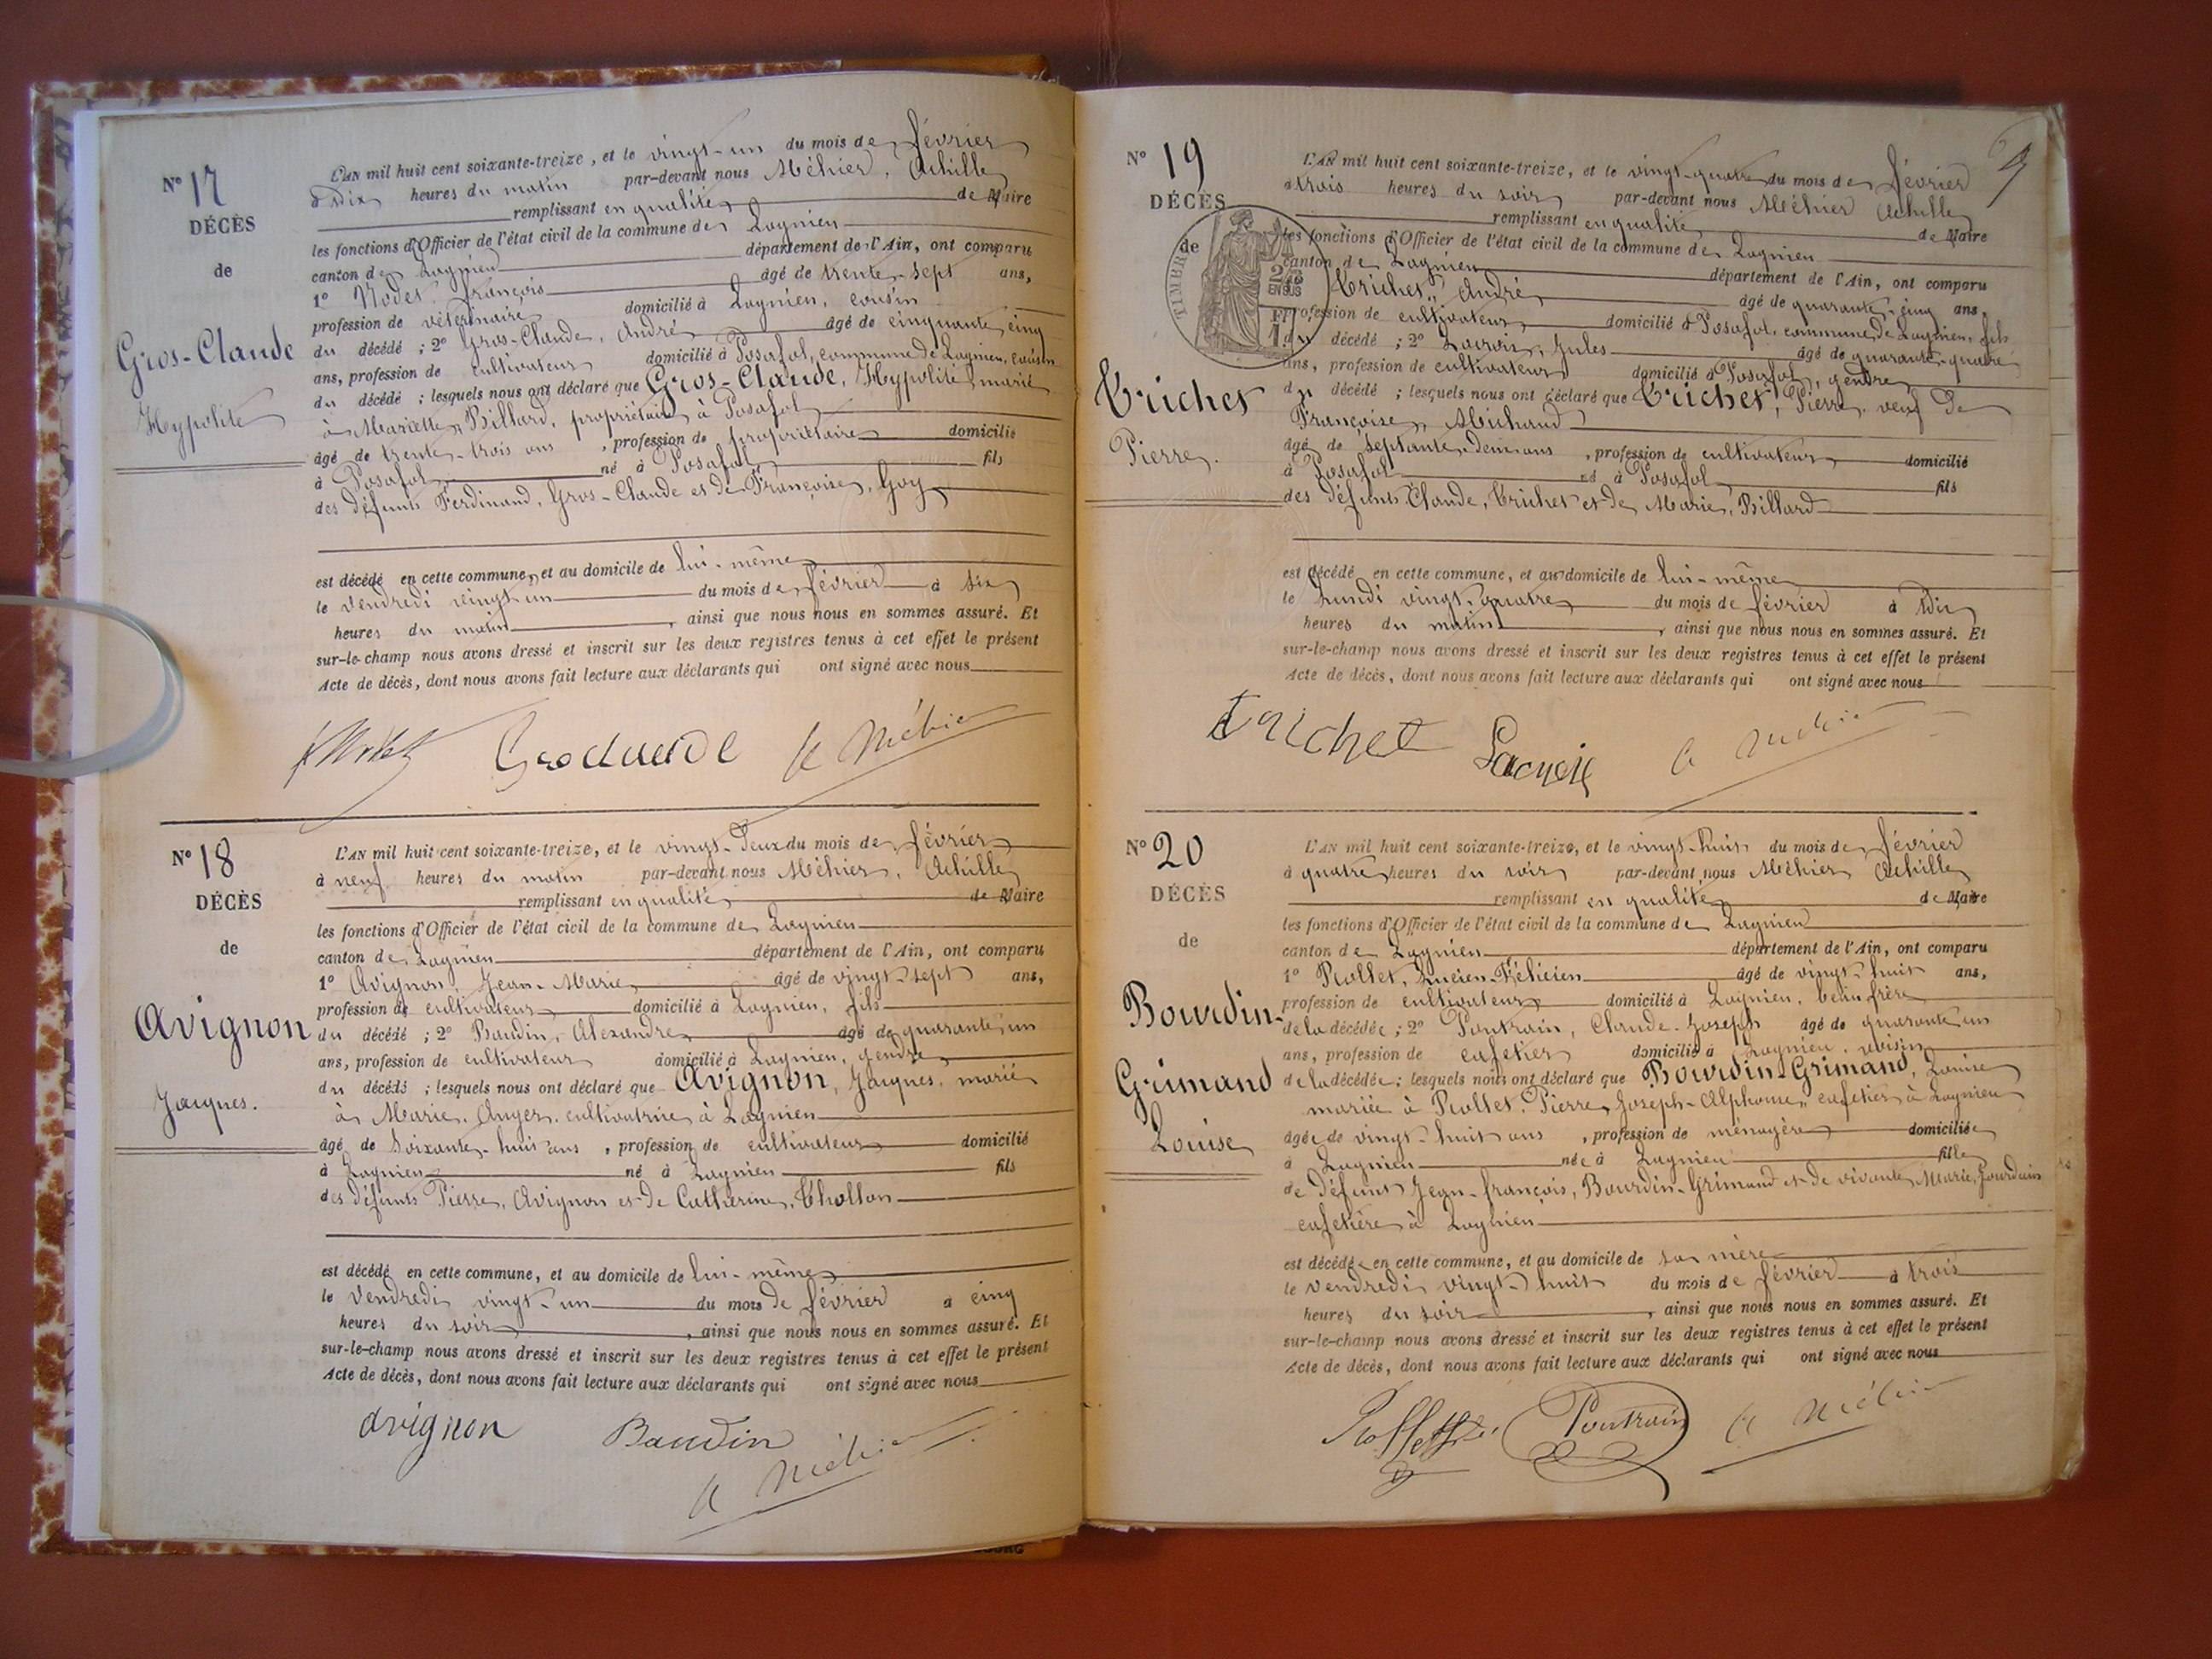 N° 17
DÉCÈS
de
Gros-Claude
Hypolite
L'AN mil huit cent soixante-treize, et le vingt-un du mois de février
à dix heures du matin par-devant nous Méhier, Achille
remplissant en qualité de Maire
les fonctions d'Officier de l'état civil de la commune de Lagnieu
canton de Lagnieu département de l'Ain, ont comparu
1° Nodet, françois âgé de trente-sept ans,
profession de vétérinaire domicilié à Lagnieu, cousin
du décédé ; 2° Gros-Claude, André âgé de cinquante cinq
ans, profession de cultivateur domicilié à Posafol, commune de Lagnieu, cousin
du décédé ; lesquels nous ont déclaré que Gros-Claude, Hypolite, marié
à Mariette, Billard, propriétaire à Posafol
âgé de trente-trois ans , profession de propriétaire domicilié
à Posafol né à Posafol fils
des défunts Ferdinand, Gros-Claude et de Françoise, Goy
est décédé en cette commune, et au domicile de lui-même
le vendredi vingt-un du mois de février à six
heures du matin , ainsi que nous nous en sommes assuré. Et
sur-le-champ nous avons dressé et inscrit sur les deux registres tenus à cet effet le présent
Acte de décès, dont nous avons fait lecture aux déclarants qui ont signé avec nous
Groclaude A Méhier
N° 18
DÉCÈS
de
Avignon
Jacques.
L'AN mil huit cent soixante-treize, et le vingt-deux du mois de février
à neuf heures du matin par-devant nous Méhier, Achille
remplissant en qualité de Maire
les fonctions d'Officier de l'état civil de la commune de Lagnieu
canton de Lagnieu département de l'Ain, ont comparu
1° Avignon, Jean-Marie âgé de vingt-sept ans,
profession de cultivateur domicilié à Lagnieu, fils
du décédé ; 2° Baudin, Alexandre âgé de quarante un
ans, profession de cultivateur domicilié à Lagnieu, gendre
du décédé ; lesquels nous ont déclaré que Avignon, Jacques, marié
à Marie, Anger, cultivatrice à Lagnieu
âgé de soixante-huit ans , profession de cultivateur domicilié
à Lagnieu né à Lagnieu fils
des défunts Pierre, Avignon et de Catherine, Chollon
est décédé en cette commune, et au domicile de lui-même
le vendredi vingt-un du mois de février à cinq
heures du soir , ainsi que nous nous en sommes assuré. Et
sur-le-champ nous avons dressé et inscrit sur les deux registres tenus à cet effet le présent
Acte de décès, dont nous avons fait lecture aux déclarants qui ont signé avec nous
avignon Baudin
A Méhier
9
N° 19
DÉCÈS
de
TIMBRE
2/10
EN SUS
1 F
Trichet
Pierre.
L'AN mil huit cent soixante-treize, et le vingt-quatre du mois de février
à trois heures du soir par-devant nous Méhier Achille
remplissant en qualité de Maire
les fonctions d'Officier de l'état civil de la commune de Lagnieu
canton de Lagnieu département de l'Ain, ont comparu
Trichet, André âgé de quarante-cinq ans,
profession de cultivateur domicilié à Posafol, commune de Lagnieu, fils
du décédé ; 2° Lacroix, Jules âgé de quarante-quatre
ans, profession de cultivateur domicilié à Posafol, gendre
du décédé ; lesquels nous ont déclaré que Trichet, Pierre, veuf de
Françoise, Michaud
âgé de septante-deux ans , profession de cultivateur domicilié
à Posafol né à Posafol fils
des défunts Claude, Trichet et de Marie, Billard
est décédé en cette commune, et au domicile de lui-même
le lundi vingt-quatre du mois de février à dix
heures du matin , ainsi que nous nous en sommes assuré. Et
sur-le-champ nous avons dressé et inscrit sur les deux registres tenus à cet effet le présent
Acte de décès, dont nous avons fait lecture aux déclarants qui ont signé avec nous
trichet Lacroix A Méhier
N° 20
DÉCÈS
de
Bourdin-
Grimand
Louise
L'AN mil huit cent soixante-treize, et le vingt-huit du mois de février
à quatre heures du soir par-devant nous Méhier Achille
remplissant en qualité de Maire
les fonctions d'Officier de l'état civil de la commune de Lagnieu
canton de Lagnieu département de l'Ain, ont comparu
1° Piollet, Lucien-Félicien âgé de vingt-huit ans,
profession de cultivateur domicilié à Lagnieu, beau frère
de la décédée ; 2° Poutrain, Claude-Joseph âgé de quarante un
ans, profession de cafetier domicilié à Lagnieu, voisin
de la décédée ; lesquels nous ont déclaré que Bourdin-Grimand, Louise
mariée à Piollet, Pierre, Joseph-Alphonse, cafetier à Lagnieu
âgée de vingt-huit ans , profession de ménagère domiciliée
à Lagnieu née à Lagnieu fille
de défunt Jean-françois, Bourdin-Grimand et de vivante Marie, Jourdain
cafetière à Lagnieu
est décédée en cette commune, et au domicile de sa mère
le vendredi vingt-huit du mois de février à trois
heures du soir , ainsi que nous nous en sommes assuré. Et
sur-le-champ nous avons dressé et inscrit sur les deux registres tenus à cet effet le présent
Acte de décès, dont nous avons fait lecture aux déclarants qui ont signé avec nous
Poutrain A Méhier